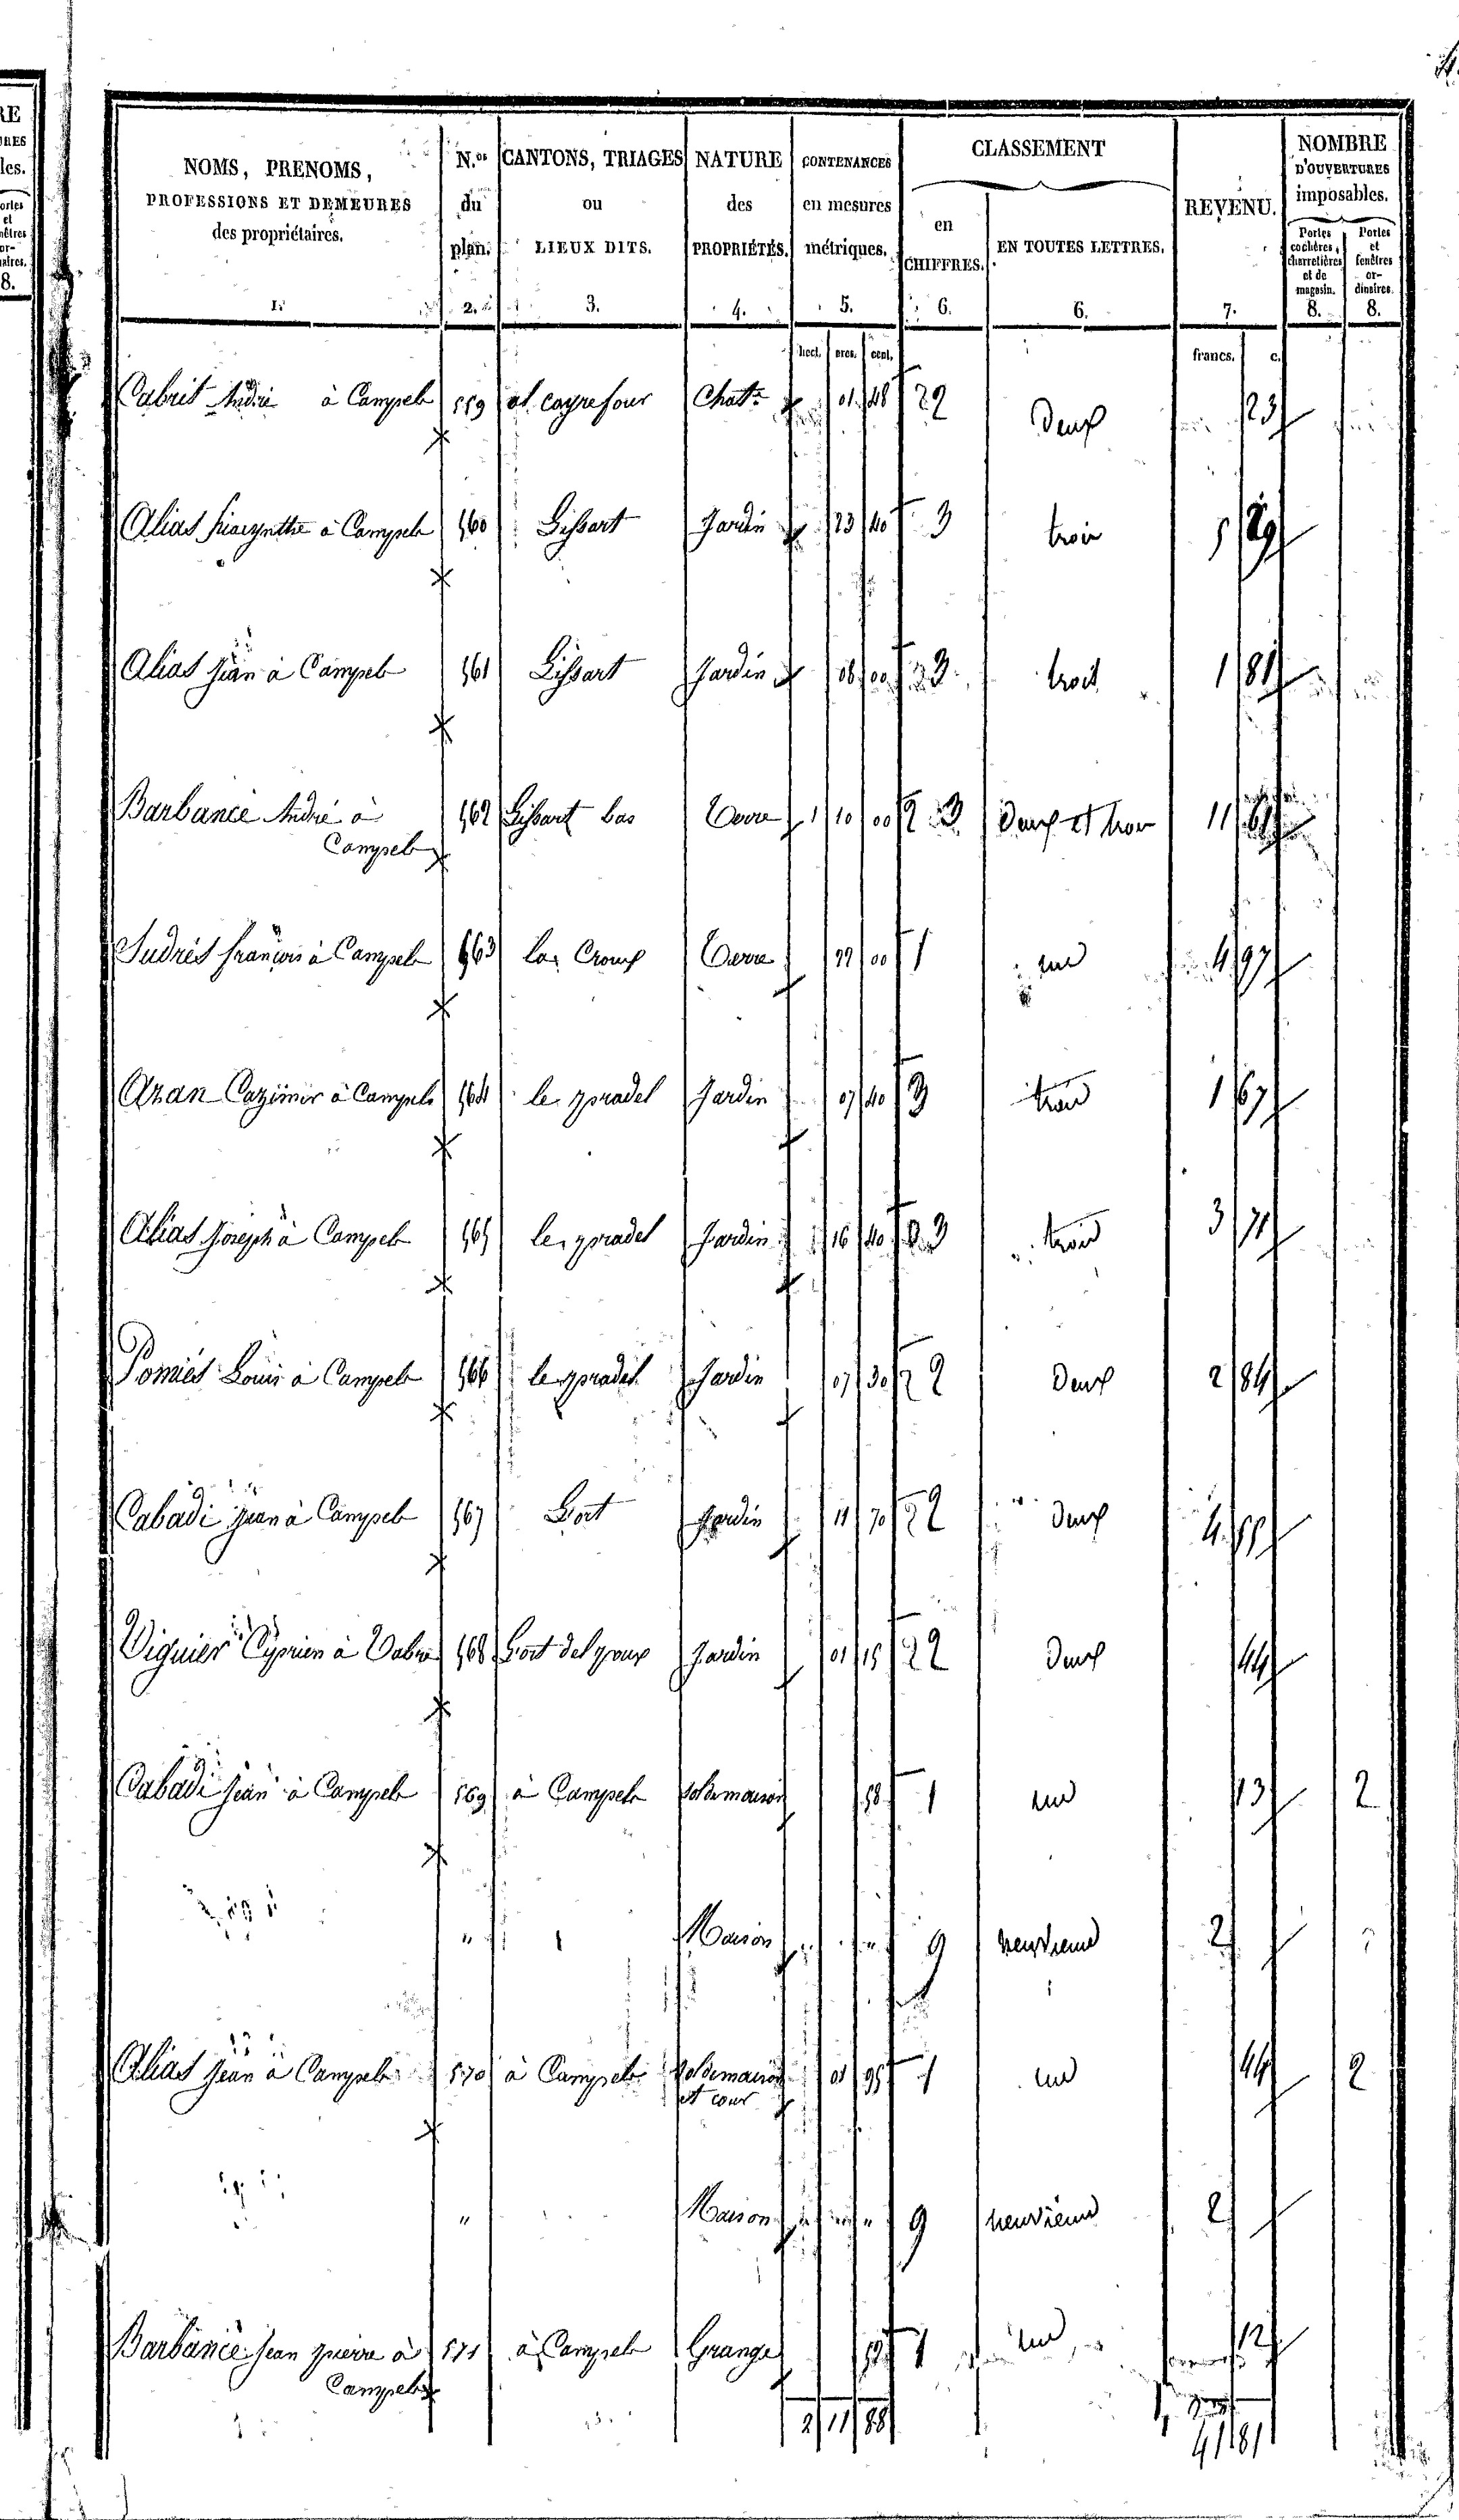 NOMS, PRENOMS,
PROFESSIONS ET DEMEURES
des propriétaires.
1.
N.os
du
plan.
2.
CANTONS, TRIAGES
ou
LIEUX DITS.
3.
NATURE
des
PROPRIÉTÉS.
4.
CONTENANCES
en mesures
métriques.
5.
CLASSEMENT
en
CHIFFRES.
6.
EN TOUTES LETTRES.
6.
REVENU.
7.
NOMBRE
D'OUVERTURES
imposables.
Portes cochères, charretières et de magasin.
8.
Portes et fenêtres ordinaires.
8.
hect. ares. cent. francs. c.
Cabrit André à Campels 559 al cayrefour Chat: 01 48 2 Deux 23
Alias hiacynthe à Campels 560 Lissart Jardin 23 40 3 trois 5 29
Alias jean à Campels 561 Lissart Jardin 08 00 3 trois 1 81
Barbance André à 562 Lissart bas Terre 1 10 00 2 3 Deux et trois 11
Campels
Sudres françois à Campels 563 la Croux Terre 22 00 1 une 4 97
Azan Cazimir à Campels 564 le pradel Jardin 07 40 3 trois 1 67
Alias Joseph à Campels 565 le pradel Jardin 16 40 3 trois 3 71
Pomiés Louis à Campels 566 le pradel Jardin 07 30 2 Deux 2 84
Cabadi jean à Campels 567 Lort Jardin 11 70 2 Deux 4 55
Viguier Cyprien à Vabre 568 Lort del poux Jardin 01 15 2 Deux 44
Cabadi jean à Campels 569 à Campels sol de maison 58 1 une 13 2
" Maison " 9 neuvieme 2
Alias jean à Campels 570 à Campels sol de maison 01 95 1 une 44 2
et cour
" Maison " 9 neuvieme 2
Barbance jean pierre à 571 à Campels Grange 52 1 une 12
Campels
2 11 88
41 81